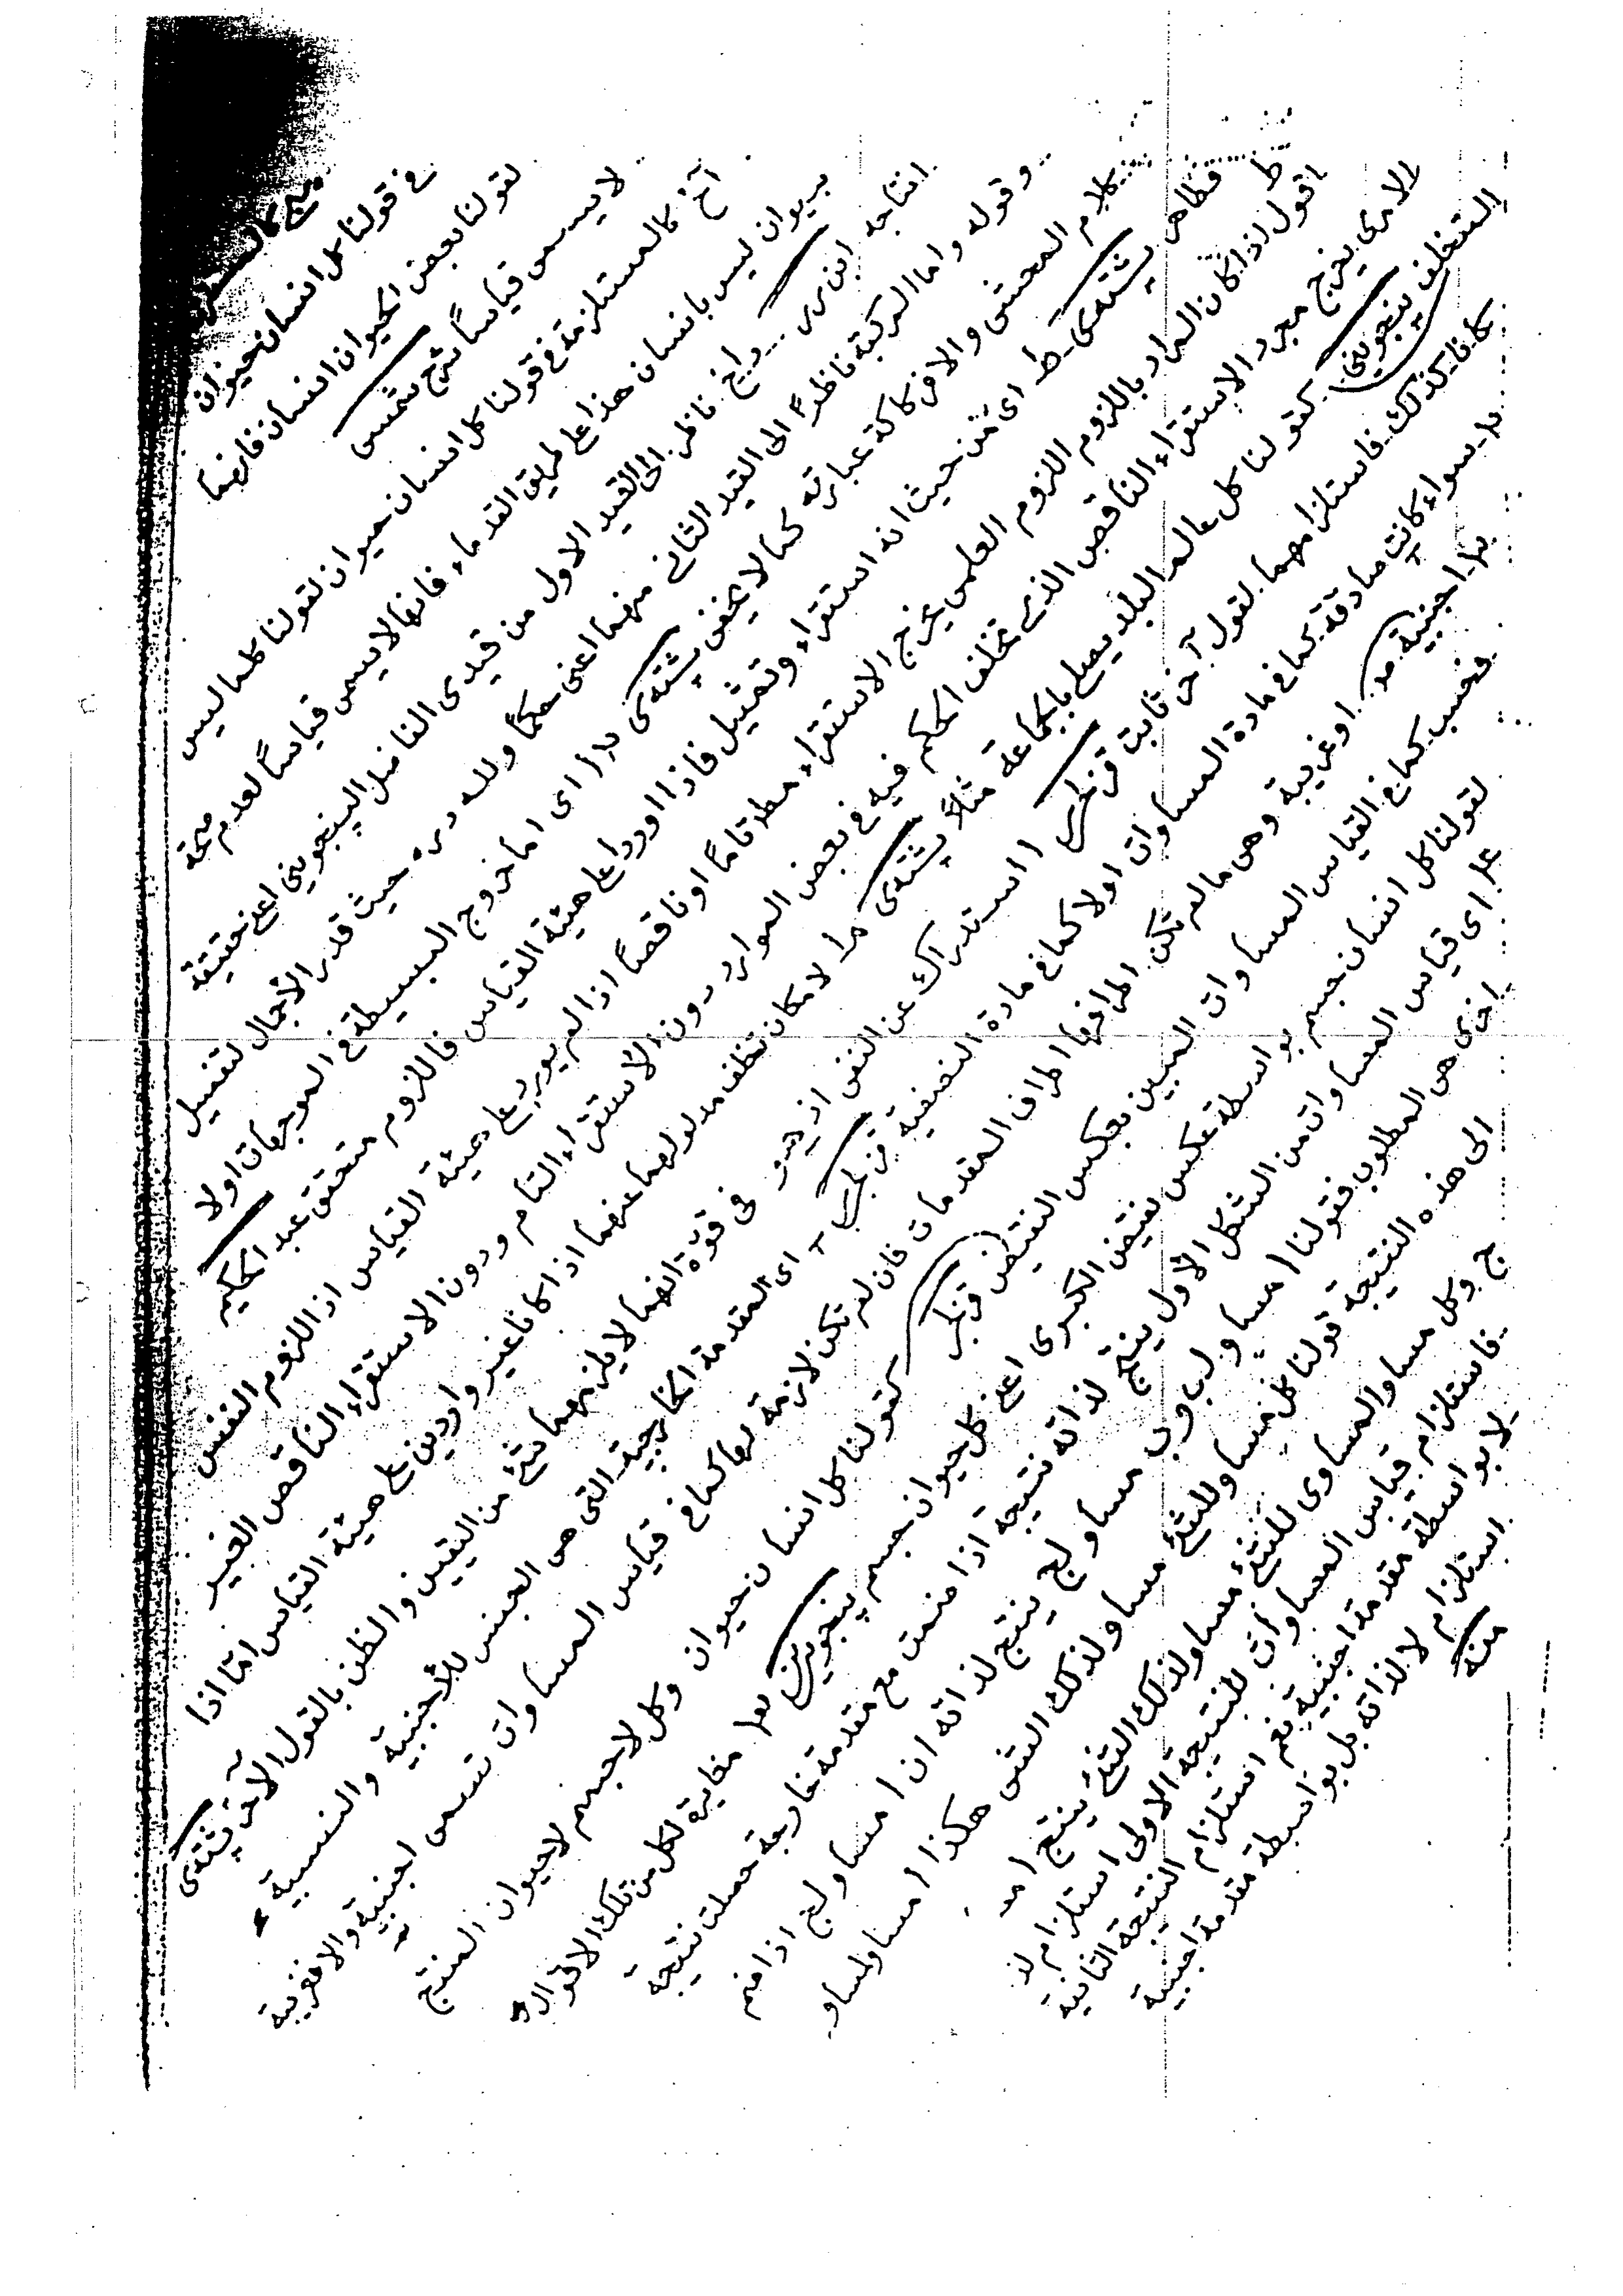 في قولنا كل انسان حيوان
لقولنا بعض الحيوان انسان فانها
لا يسمى قياسًا شرح شمس
آخر كالمستلزمة في قولنا كل انسان حيوان لقولنا كلما ليس
بحيوان ليس بانسان هذا على طريق القدماء فانها لا يسمى قياسًا لعدم صحة
انتاجه ناظر الى القيد الاول من قيدى الفاضل الپنجوينى اعنى حقيقة
وقوله واما المركبة ناظرة الى القيد الثانى منهما اعنى حكمًا ولله دره حيث قدر الاجمال لتفصيل
كلام المحشى والا فركاكة عبارته كما لا يخفى پشتدى اى اما خروج البسيطة في الموجهات اولا
فظاهر پشتدى ط اى من حيث انه استقراء وتمثيل فاذا اوردا على هيئة القياس فاللزوم متحقق عبد الحكيم
اقول اذا كان المراد باللزوم اللزوم العلمى يخرج الاستقراء مطلقا تامًا او ناقصًا اذا لم يورد على هيئة القياس اذ اللزوم النفس
الامرى يخرج مجرد الاستقراء الناقص الذى تخلف الحكم فيه في بعض الموارد دون الاستقراء التام ودون الاستقراء الناقص الغير
المتخلف پنجوينى كقولنا كل عالم البلد يصلى بالجماعة مثلاً پشتدى لامكان تخلف مدلولهما عنهما اذا كانا غير واردين على هيئة القياس امّا اذا
كانا كذلك فاستلزامهما لقول آخر ثابت قزلجى استدراك عن النفى اذ هو في قوّة انهما لا يلزمهما شئ من اليقين والظن بالقول الآخر پشتدى
سواء كانت صادقة كما في مادة المساوات اولا كما في مادة النصفية قزلجى اى المقدمة الخارجية التى هى الجنس للاجنبية والنسبية
اجنبية مد او غريبة وهى مالم تكن اطرافها اطراف المقدمات فان لم تكن لازمة لها كما في قياس المساوات تسمى اجنبية والا فغريبة
فحسب كما في القياس المساوات المبين بعكس النقيض قزلجى كقولنا كل انسان حيوان وكل لا جسم لا حيوان المنتج
لقولنا كل انسان جسم بواسطة عكس نقيض الكبرى اعنى كل حيوان جسم پنجوينى مغايرة لكل من تلك الاقوال
اى قياس المساوات من الشكل الأول ينتج لذاته نتيجة اذا ضمت مع مقدمة خارجة حصلت نتيجة
اخرى هى المطلوب فقولنا ا مساو لب وب مساو لج ينتج لذاته ان ا مساو لج اذا ضم
الى هذه النتيجة قولنا كل مساو للشئ مساو لذلك الشئ هكذا ا مساو لمساو
ج وكل مساو المساوى للشئ مساو لذلك الشئ ينتج امد
فاستلزام قياس المساوات للنتيجة الاولى استلزام لذ
لا بواسطة مقدمة اجنبية نعم استلزام النتيجة الثانية
استلزام لا لذاته بل بواسطة مقدمة اجنبية
منه